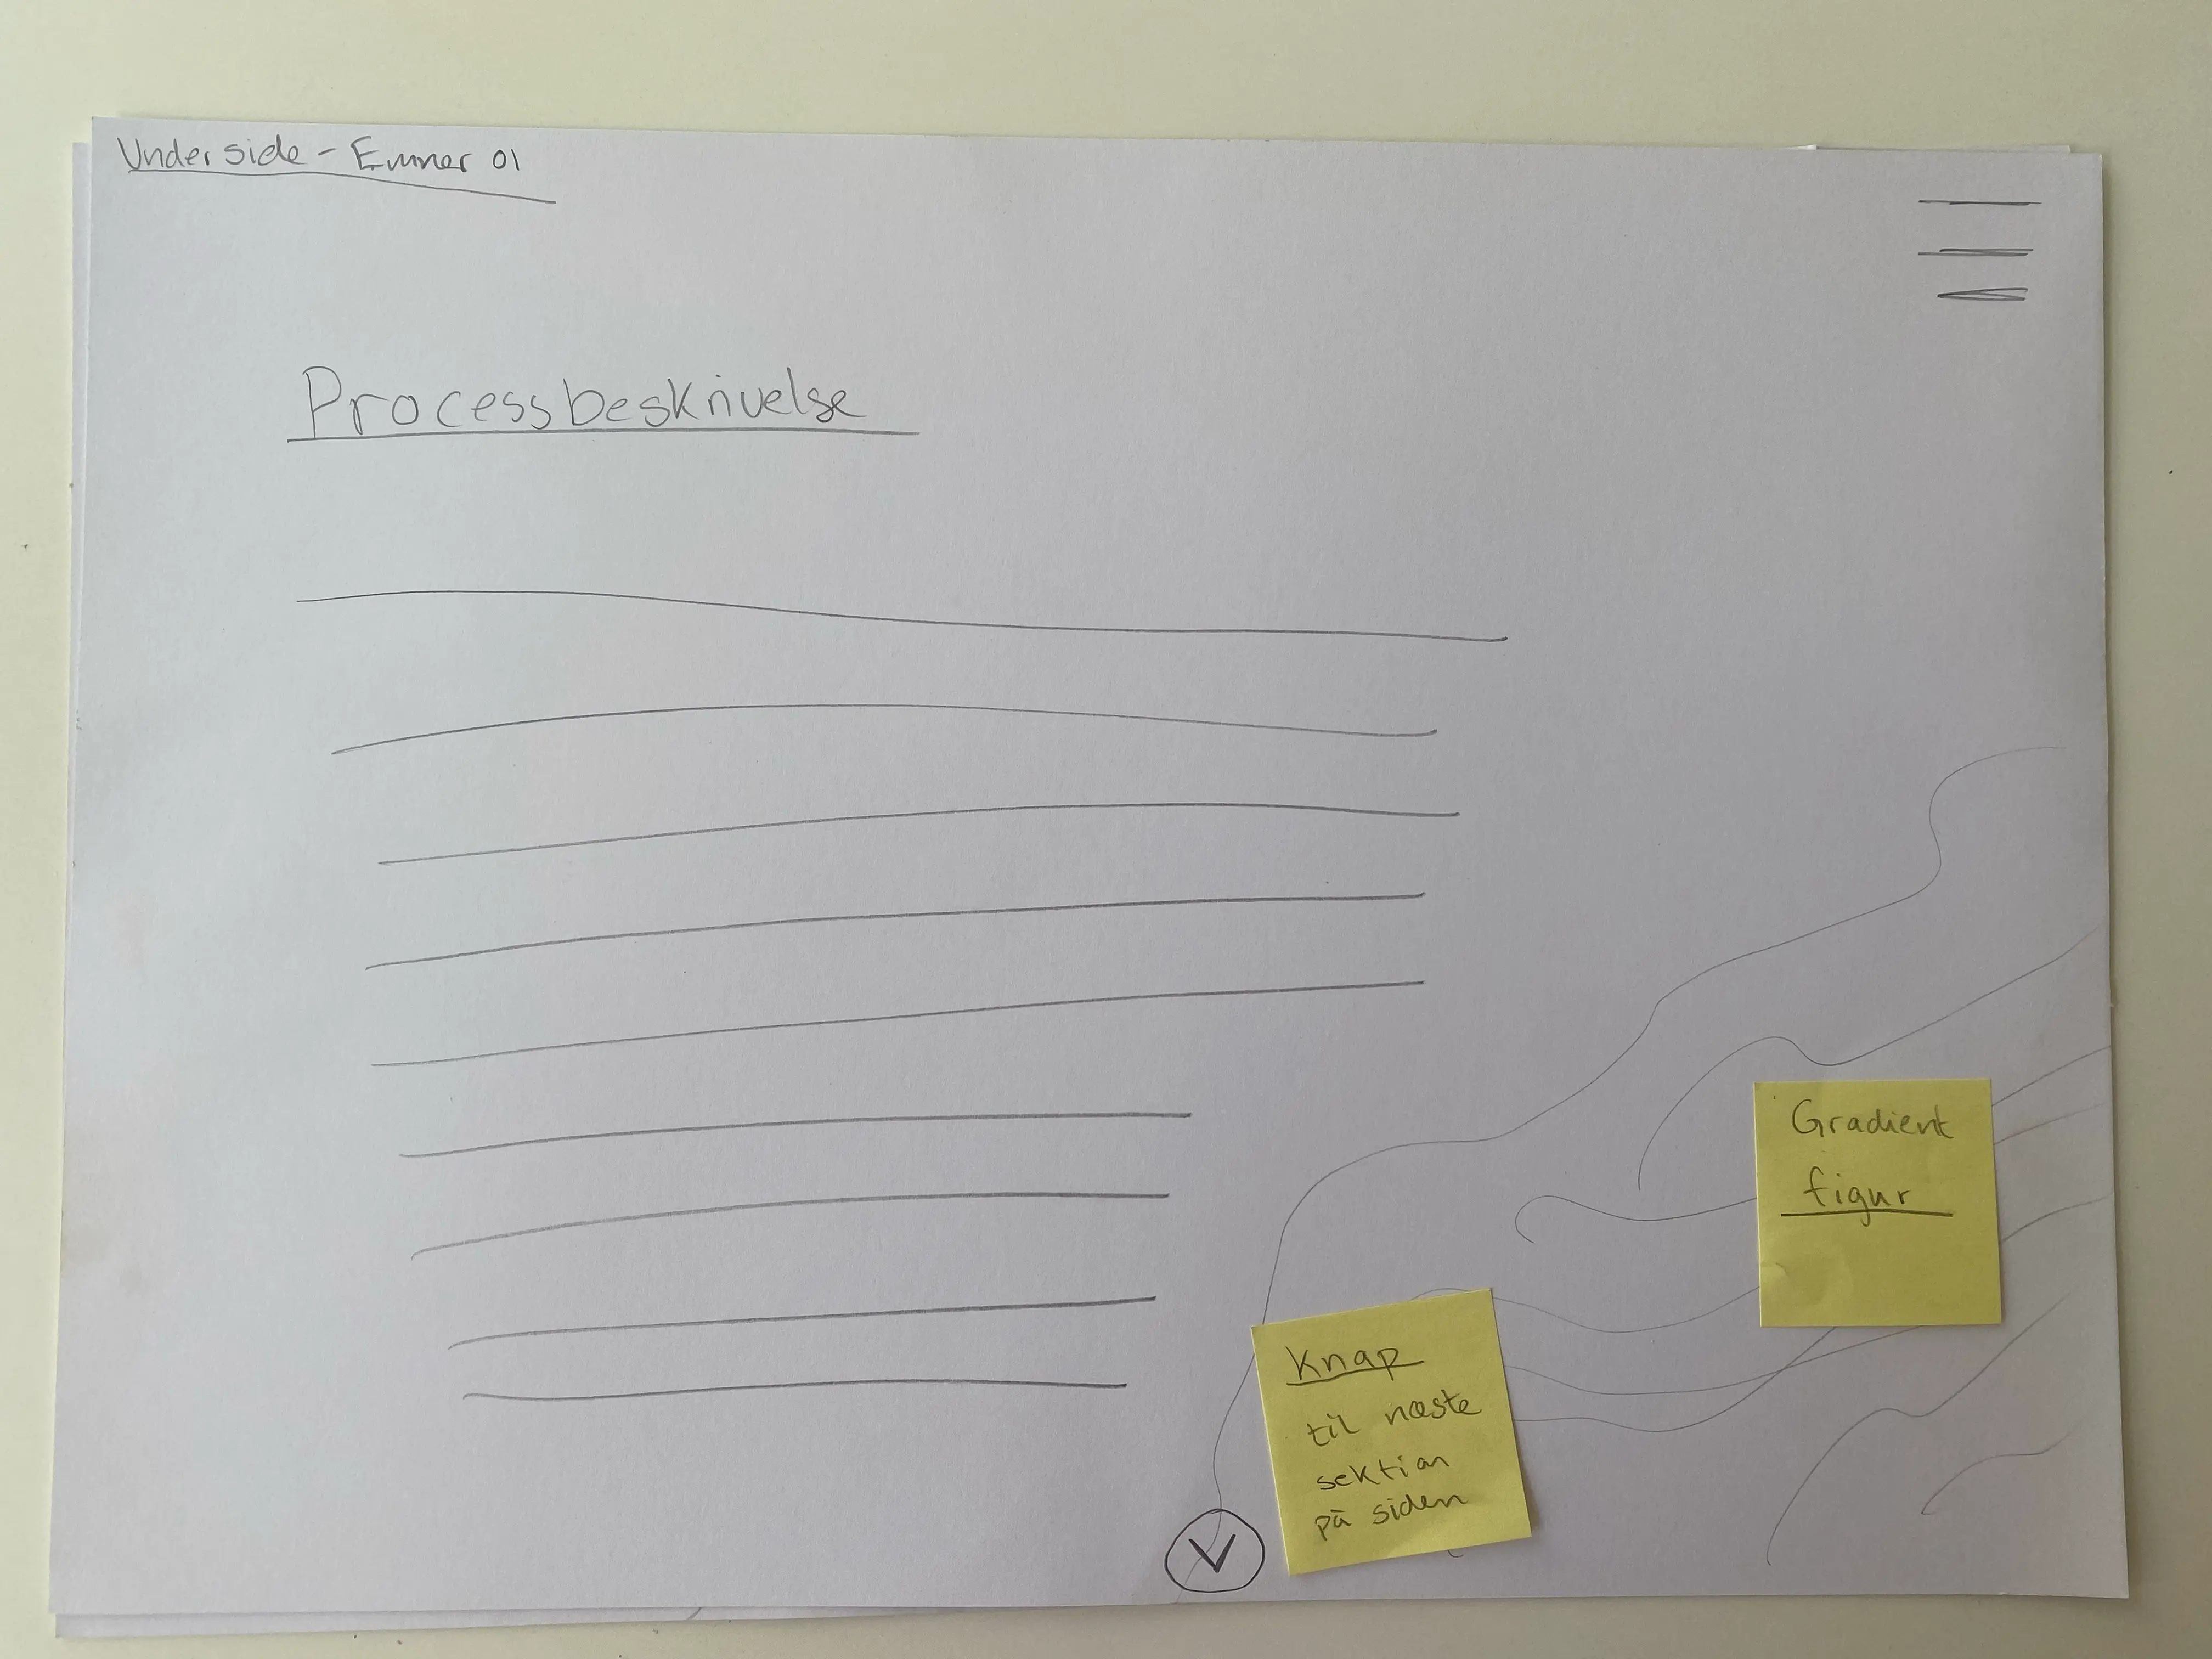 Underside - Emner 01
Processbeskrivelse
Gradient
figur
Knap
til næste
sektion
på siden